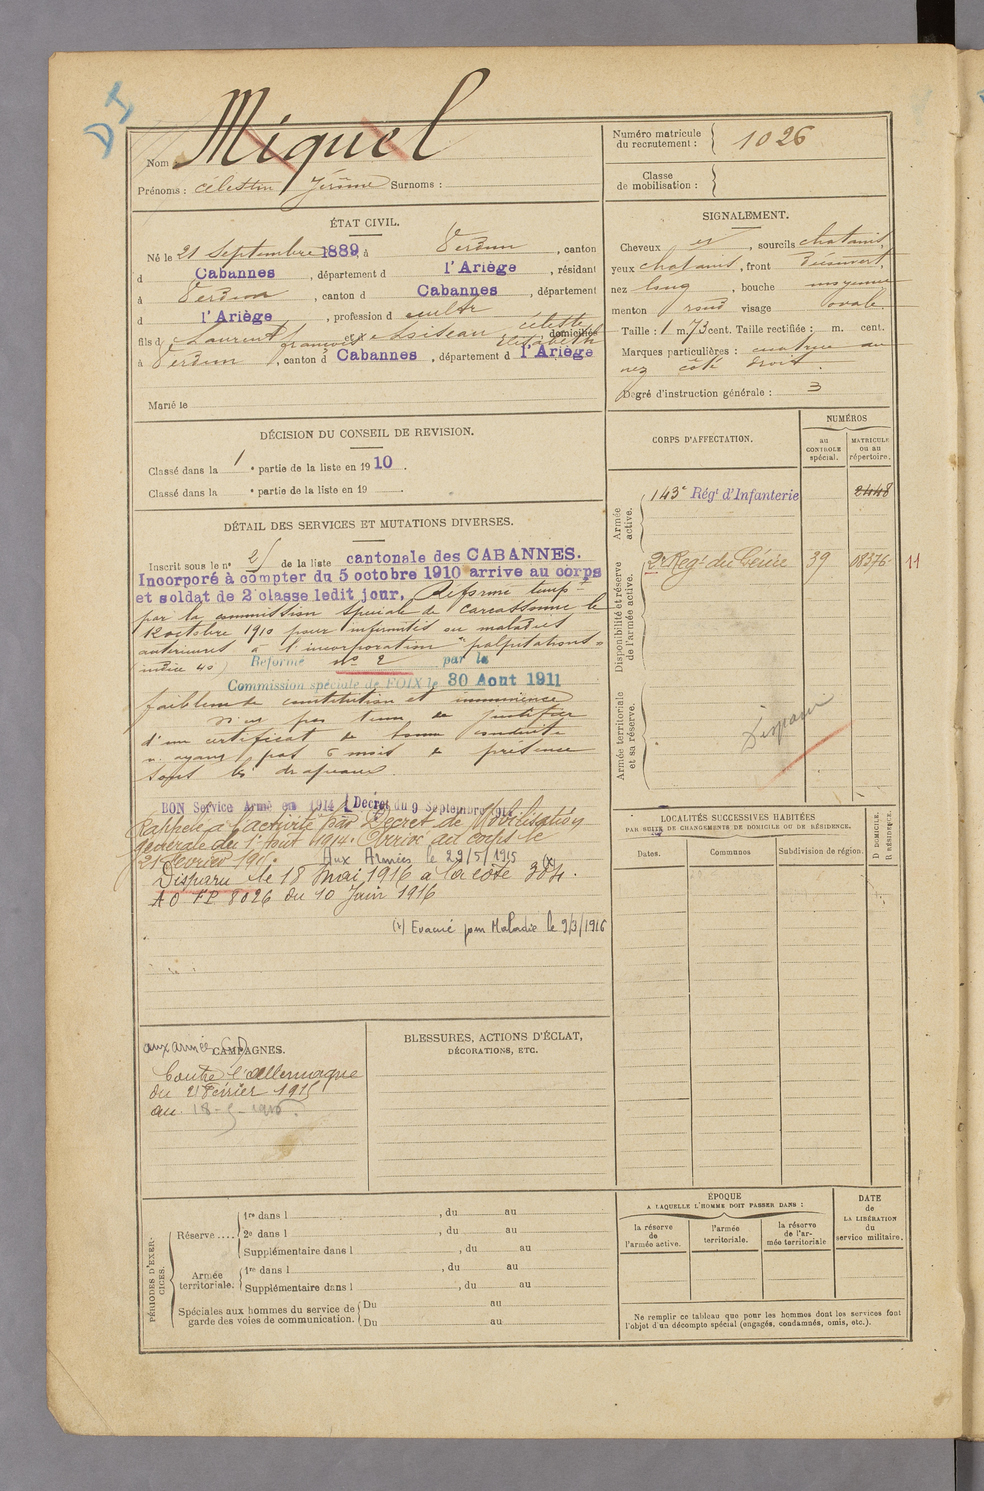 DI
Nom : Miquel
Prénoms : Célestin Jérôme Surnoms :
Numéro matricule
du recrutement : 1026
Classe
de mobilisation :
ÉTAT CIVIL.
Né le 21 Septembre 1889, à Verdun, canton
d Cabannes, département d l'Ariège, résidant
à Verdun, canton d Cabannes, département
d l'Ariège, profession d cultr
fils d Laurent françois et d céleste Elisabeth domiciliés
à Verdun, canton d Cabannes, département d l'Ariège
Marié le
SIGNALEMENT.
Cheveux et, sourcils chatains,
yeux chatains, front découvert,
nez long, bouche moyenne
menton rond visage ovale
Taille : 1 m 73 cent. Taille rectifiée : m. cent.
Marques particulières : cicatrice au
nez côté droit.
Degré d'instruction générale : 3
DÉCISION DU CONSEIL DE REVISION.
Classé dans la 1e partie de la liste en 1910.
Classé dans la e partie de la liste en 19
CORPS D'AFFECTATION.
NUMÉROS
au
CONTROLE
spécial.
MATRICULE
ou au
répertoire.
Armée
active.
143e Régt d'Infanterie 2448
Disponibilité et réserve
de l'armée active.
2e Regt du Génie 39 08376 11
Armée territoriale
et sa réserve.
Disparu
DÉTAIL DES SERVICES ET MUTATIONS DIVERSES.
Inscrit sous le n° 25 de la liste cantonale des CABANNES.
Incorporé à compter du 5 octobre 1910 arrive au corps
et soldat de 2 classe ledit jour. Réformé tempre
par la commission spéciale de Carcassonne le
12 octobre 1910 pour infirmités ou maladies
antérieures à l'incorporation "palpitations"
(indice 40) Réformé n° 2 par la
Commission spéciale de FOIX le 30 Aont 1911
faiblesse de constitution et imminence
N'est pas tenu de justifier
d'un certificat de bonne conduite
n'ayant pas 6 mois de présence
sous les drapeaux.
BON Service Armé en 1914 Décret du 9 Septembre 1914
Rappelé à l'activité par Décret de Mobilisation
générale du 1er Août 1914. Arrivé au corps le
21 février 1915. Aux Armées le 22/5/1915
Disparu le 18 Mai 1916 à la côte 304. (x)
AO FP 8026 du 10 Juin 1916
(x) Evacué pour Maladie le 9/3/1916
LOCALITÉS SUCCESSIVES HABITÉES
PAR SUITE DE CHANGEMENTS DE DOMICILE OU DE RÉSIDENCE.
Dates. Communes Subdivision de région.
D DOMICILE.
R RÉSIDENCE.
CAMPAGNES.
aux armées
Contre l'Allemagne
du 21 Février 1915
au 18-5-1916
BLESSURES, ACTIONS D'ÉCLAT,
DÉCORATIONS, ETC.
PÉRIODES D'EXER-
CICES.
Réserve....
1re dans l , du au
2e dans l , du au
Supplémentaire dans l , du au
Armée
territoriale.
1re dans l , du au
Supplémentaire dans l , du au
Spéciales aux hommes du service de
garde des voies de communication.
Du au
Du au
ÉPOQUE
A LAQUELLE L'HOMME DOIT PASSER DANS :
la réserve
de
l'armée active.
l'armée
territoriale.
la réserve
de l'ar-
mée territoriale
DATE
de
LA LIBÉRATION
du
service militaire.
Ne remplir ce tableau que pour les hommes dont les services font
l'objet d'un décompte spécial (engagés, condamnés, omis, etc.).